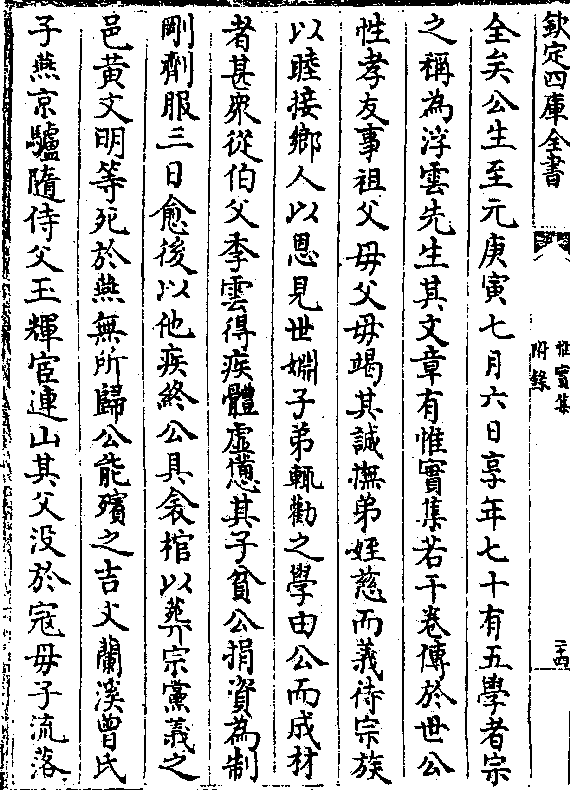 欽定四庫全書
惟實集
附錄
二十四
全矣公生至元庚寅七月六日享年七十有五學者宗
之稱為浮雲先生其文章有惟實集若干卷傳於世公
性孝友事祖父母父母竭其誠撫弟姪慈而義待宗族
以睦接鄉人以恩見世姻子弟輒勸之學由公而成材
者甚衆從伯父季雲得疾體虛憊其子貧公捐資為制
剛劑服三日愈後以他疾終公具衾棺以葬宗黨義之
邑黄文明等死於燕無所歸公能殯之吉文蘭溪曾氏
子燕京驢隨侍父玉輝宦連山其父没於寇母子流落